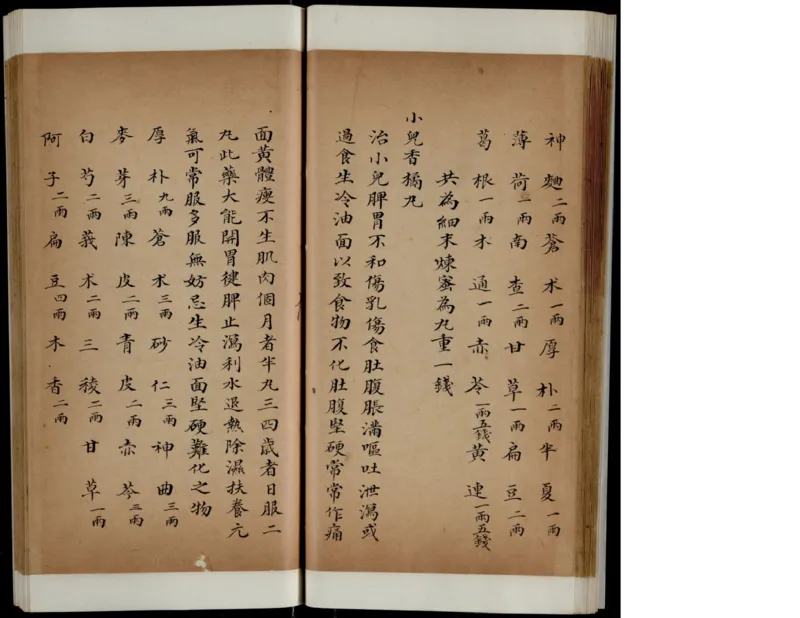 神麯二兩蒼术一兩厚朴二兩半夏一兩
薄荷二兩南查二兩甘草一兩扁豆二兩
葛根一兩木通一兩赤苓一兩五錢黄連一兩五錢
共為細末煉蜜為丸重一錢
小兒香橘丸
治小兒脾胃不和傷乳傷食肚腹脹滿嘔吐泄瀉或
過食生冷油面以致食物不化肚腹堅硬常常作痛
面黄體瘦不生肌肉個月者半丸三四歲者日服二
丸此藥大能開胃健脾止瀉利水退熱除濕扶養元
氣可常服多服無妨忌生冷油面堅硬難化之物
厚朴九兩蒼术三兩砂仁三兩神曲三兩
麥芽三兩陳皮二兩青皮二兩赤苓三兩
白芍二兩莪术二兩三稜二兩甘草一兩
阿子二兩扁豆四兩木香二兩